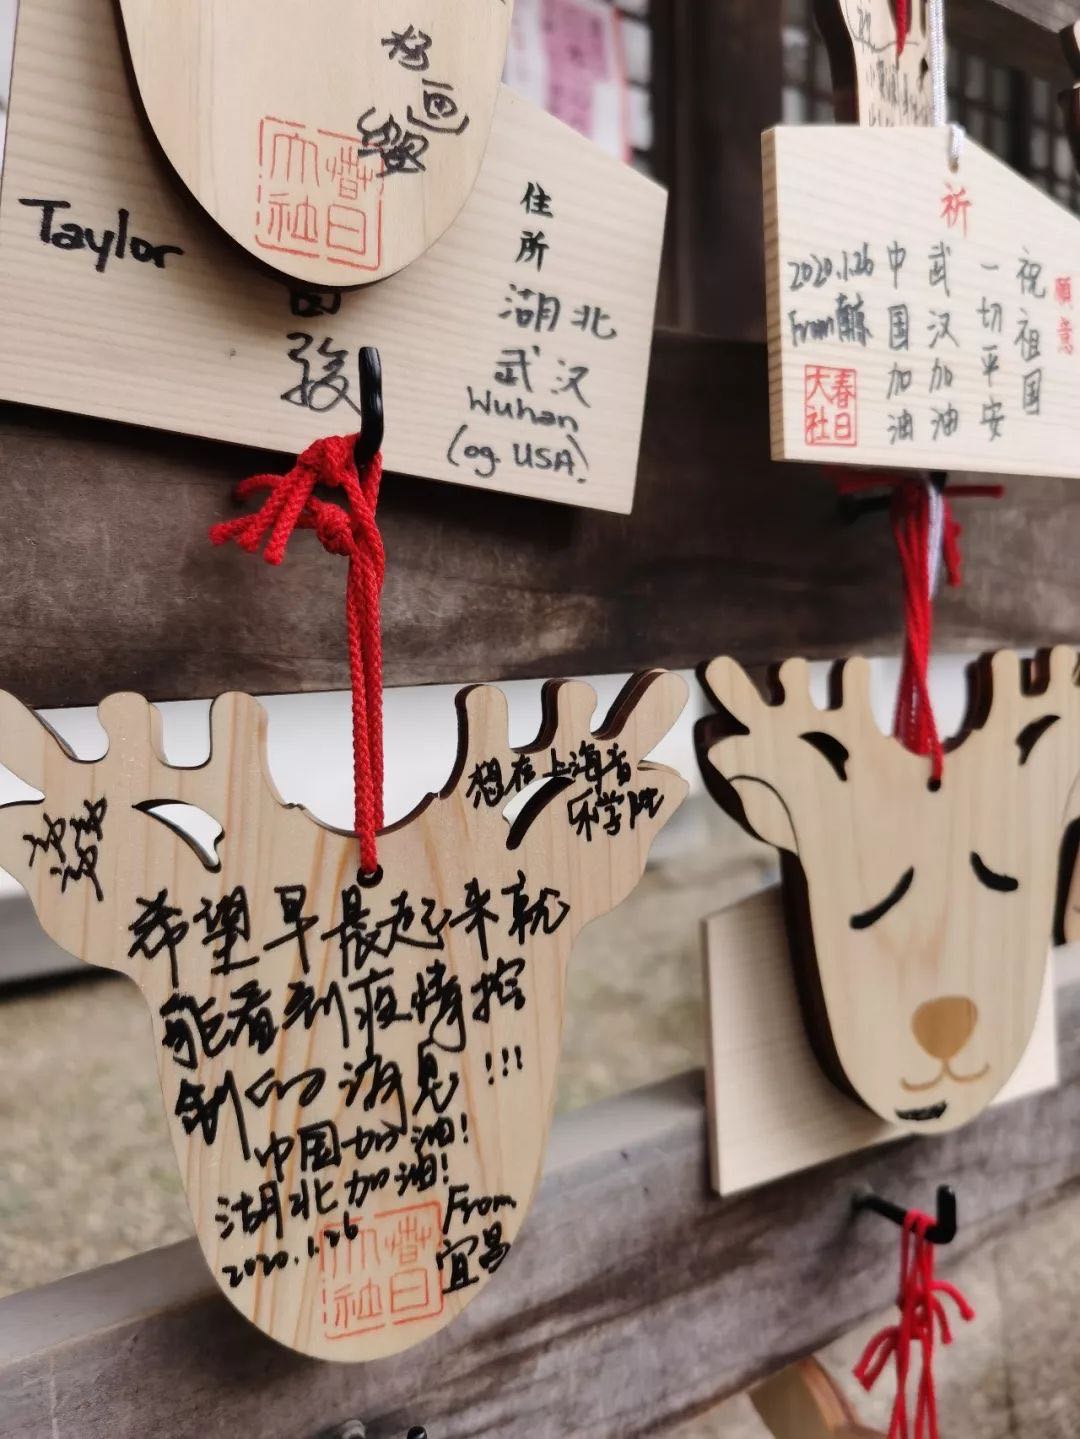 春日
大社
Taylor
住所
湖北
武汉
Wuhan
(og. USA)
祈
願意
祝祖国
一切平安
武汉加油
中国加油
2020.1.26
From
春日
大社
想在上海音
乐学院
希望早晨起来就
能看到疫情控
制的消息!!!
中国加油!
湖北加油!
2020.1.26
From
宜昌
春日
大社